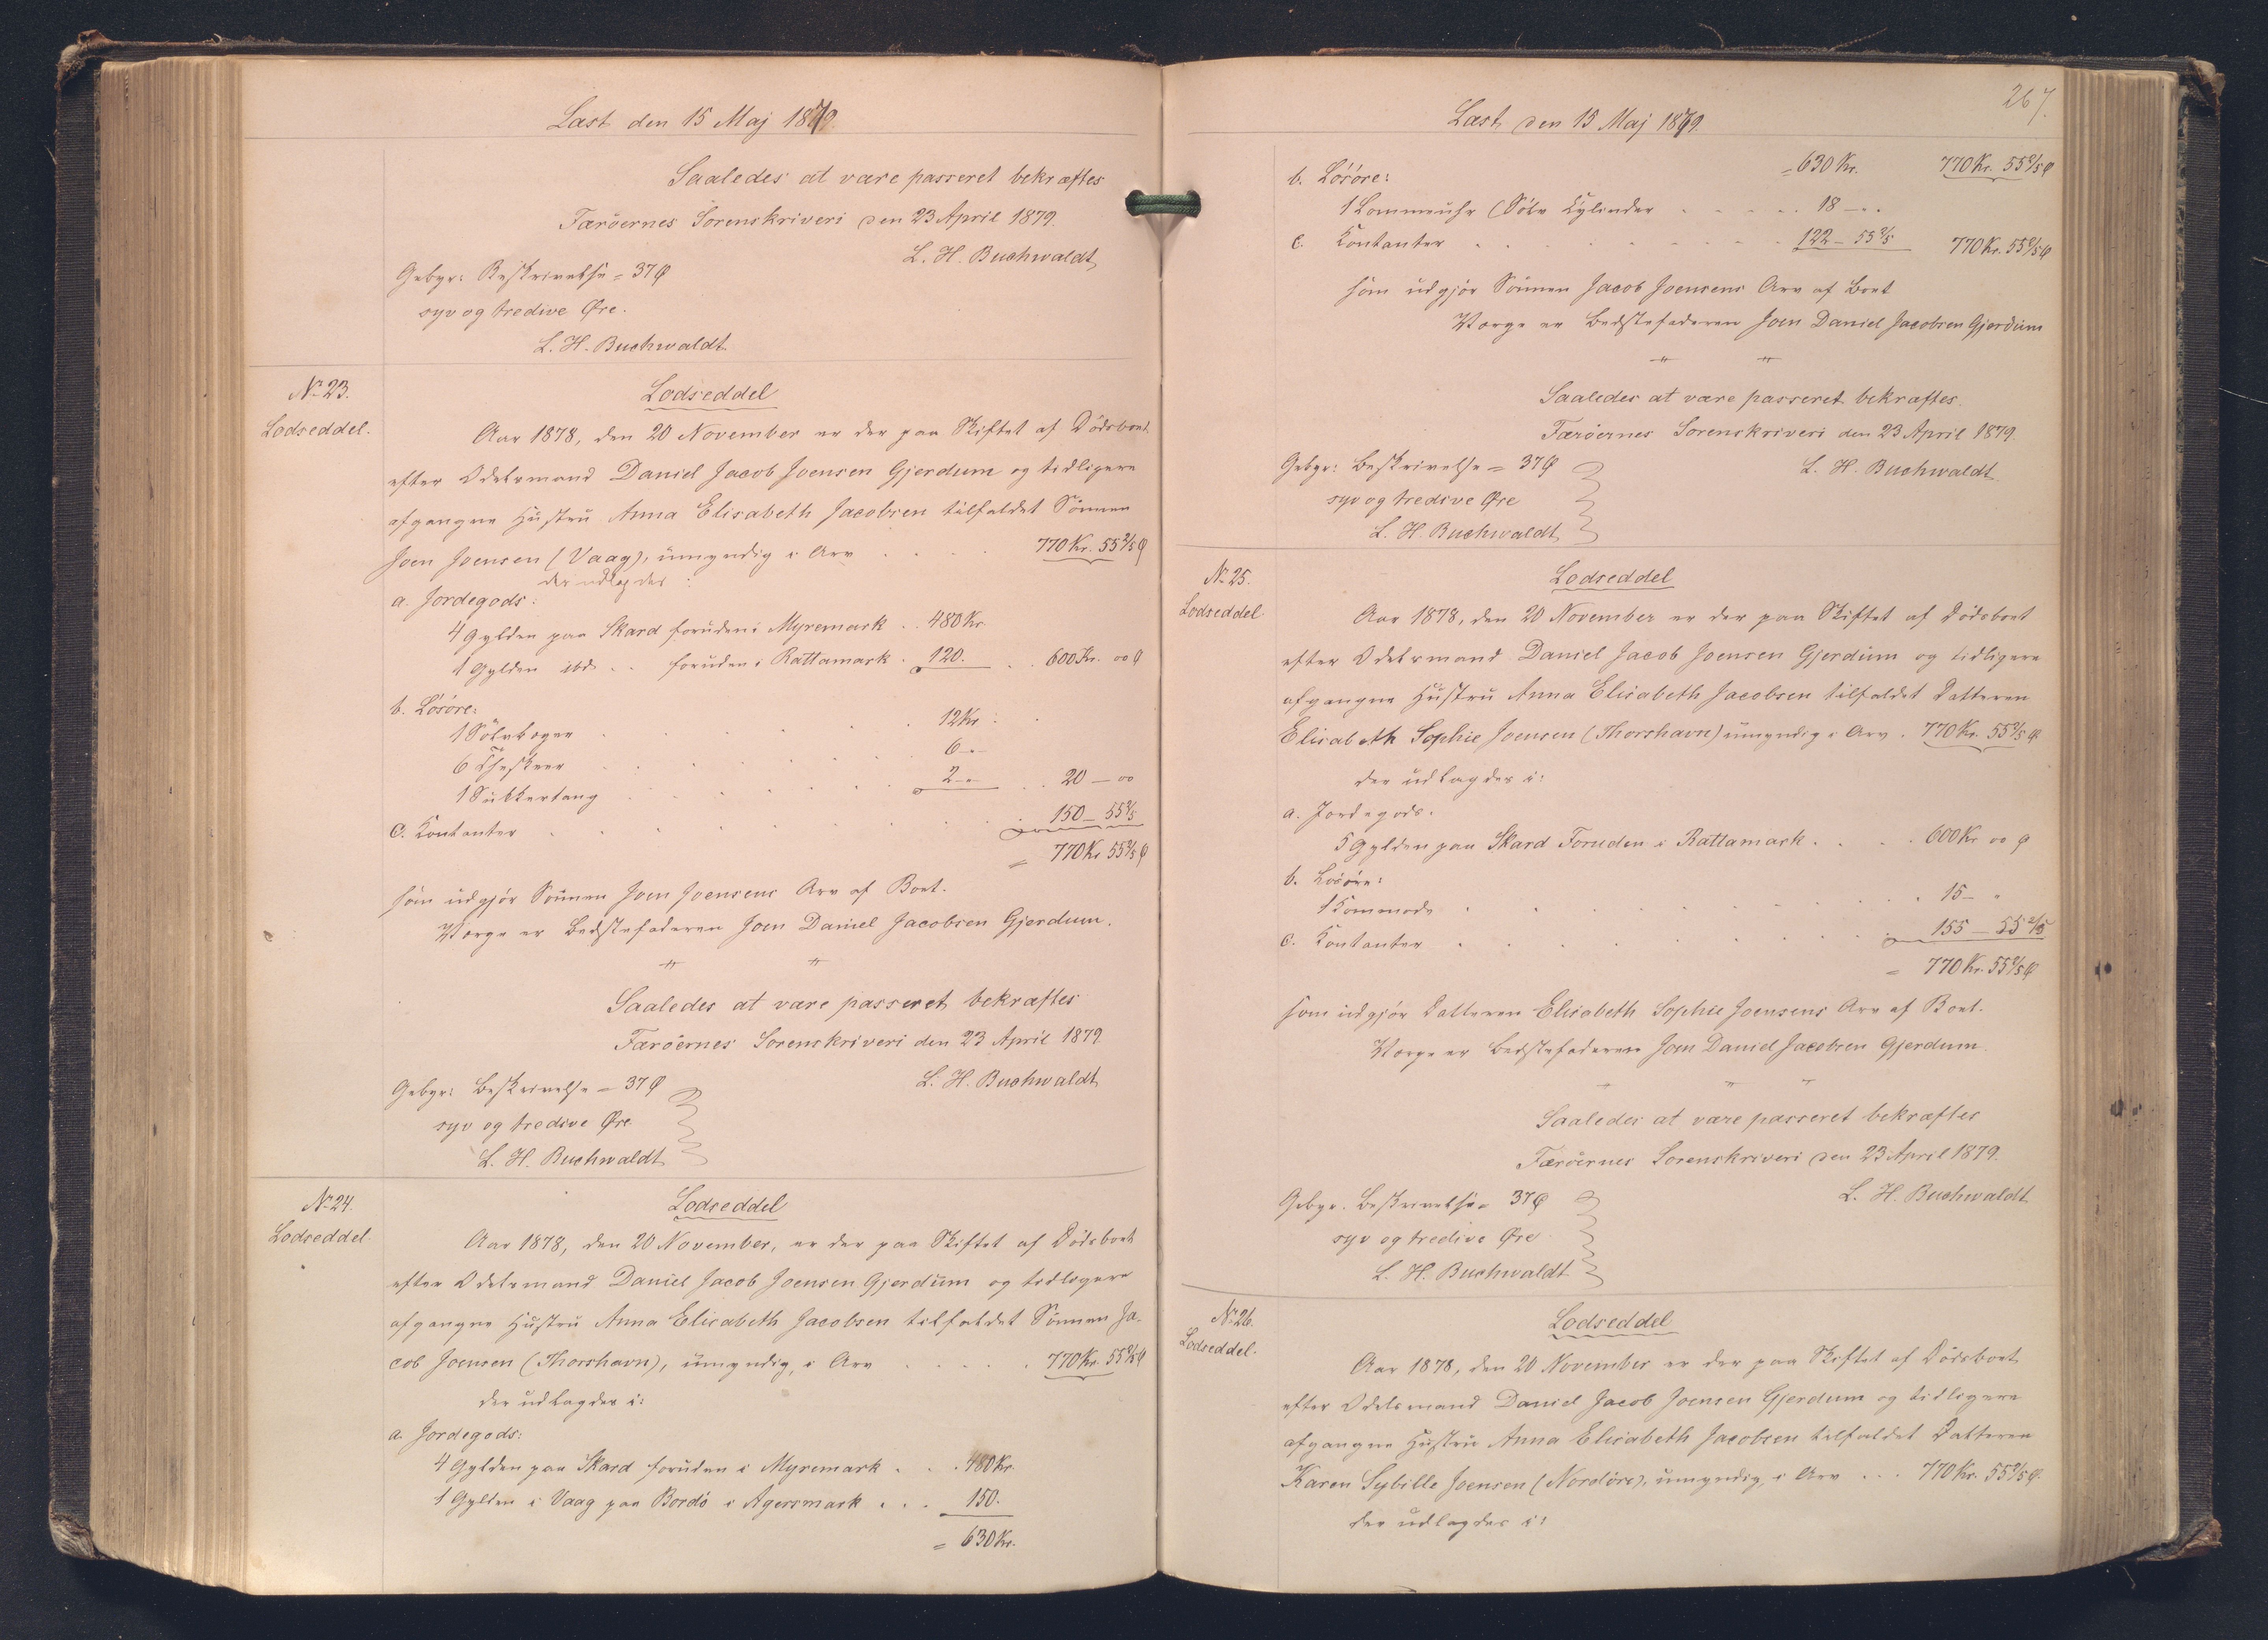 Læst den 15 Maj 1879.
Saaledes at være passeret bekræftes
Færöernes Sorenskriveri den 23 April 1879.
L. H. Buchwaldt
Gebyr: Beskrivelse = 37 Ø
syv og tredive Øre.
L. H. Buchwaldt.
No 23.
Lodseddel.
Lodseddel
Aar 1878, den 20 November er der paa Skiftet af Dödsboet
efter Odelsmand Daniel Jacob Joensen Gjerdum og tidligere
afgangne Hustru Anna Elisabeth Jacobsen tilfaldet Sönnen
Joen Joensen (Vaag), umyndig i Arv . . . . 770 Kr. 55 2/5 Ø
der udlagdes :
a. Jordegods:
4 Gylden paa Skard foruden i Myremark . . 480 Kr.
1 Gylden ibd. . . foruden i Rattamark . 120. . . 600 Kr. 00 Ø
b. Lösöre:
1 Sölvbæger . . . . . 12 Kr.
6 Theskeer . . . . . 6 - "
1 Sukkertang . . . . . 2 - " . . 20 - 00
c. Kontanter . . . . . . . . 150 - 55 2/5
= 770 Kr. 55 2/5 Ø
som udgjör Sönnen Joen Joensens Arv af Boet.
Værge er Bedstefaderen Joen Daniel Jacobsen Gjerdum.
" "
Saaledes at være passeret bekræftes
Færöernes Sorenskriveri den 23 April 1879
L. H. Buchwaldt
Gebyr: Beskrivelse = 37 Ø
syv og tredive Øre.
L. H. Buchwaldt
No 24.
Lodseddel.
Lodseddel
Aar 1878, den 20 November, er der paa Skiftet af Dödsboet
efter Odelsmand Daniel Jacob Joensen Gjerdum og tidligere
afgangne Hustru Anna Elisabeth Jacobsen tilfaldet Sönnen Ja-
cob Joensen (Thorshavn), umyndig, i Arv . . . . . 770 Kr. 55 2/5 Ø
der udlagdes i:
a. Jordegods:
4 Gylden paa Skard foruden i Myremark . . . 480 Kr.
1 Gylden i Vaag paa Bordö i Agersmark . . . 150.
= 630 Kr.
267.
Læst den 15 Maj 1879.
= 630 Kr. 770 Kr. 55 2/5 Ø
b. Lösöre:
1 Lommeuhr (Sölv Cylinder . . . . . 18 - "
c. Kontanter . . . . . . . . 122 - 55 2/5 770 Kr. 55 2/5 Ø
som udgjör Sönnen Jacob Joensens Arv af Boet
Værge er Bedstefaderen Joen Daniel Jacobsen Gjerdum
" "
Saaledes at være passeret bekræftes.
Færöernes Sorenskriveri den 23 April 1879.
L. H. Buchwaldt.
Gebyr: Beskrivelse = 37 Ø
syv og tredive Øre
L. H. Buchwaldt
No 25.
Lodseddel
Lodseddel
Aar 1878, den 20 November er der paa Skiftet af Dödsboet
efter Odelsmand Daniel Jacob Joensen Gjerdum og tidligere
afgangne Hustru Anna Elisabeth Jacobsen tilfaldet Datteren
Elisabeth Sophie Joensen (Thorshavn) umyndig i Arv . 770 Kr. 55 2/5 Ø.
der udlagdes i:
a. Jordegods.
5 Gylden paa Skard Foruden i Rattamark . . . . 600 Kr 00 Ø
b. Lösöre:
1 Kommode . . . . . . . . . 15 - "
c. Kontanter . . . . . . . . 155 - 55 2/5
= 770 Kr. 55 2/5 Ø
som udgjör Datteren Elisabeth Sophie Joensens Arv af Boet.
Værge er Bedstefaderen Joen Daniel Jacobsen Gjerdum.
" " "
Saaledes at være passeret bekræftes
Færöernes Sorenskriveri den 23 April 1879.
L. H. Buchwaldt
Gebyr. Beskrivelse = 37 Ø
syv og tredive Øre
L. H. Buchwaldt
No 26.
Lodseddel.
Lodseddel
Aar 1878, den 20 November er der paa Skiftet af Dödsboet
efter Odelsmand Daniel Jacob Joensen Gjerdum og tidligere
afgangne Hustru Anna Elisabeth Jacobsen tilfaldet Datteren
Karen Sybille Joensen (Nordöre), umyndig, i Arv . . . 770 Kr. 55 2/5 Ø.
der udlagdes i: